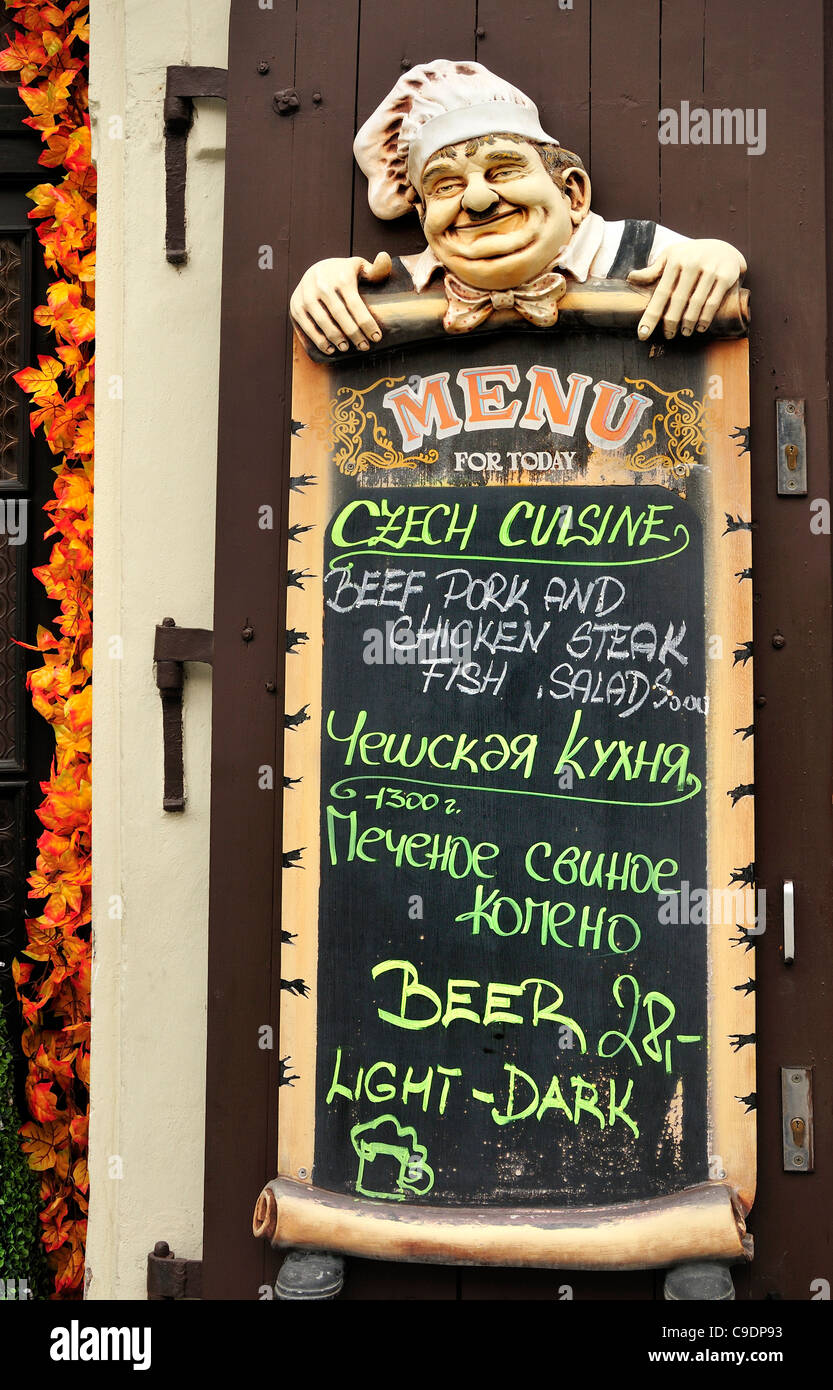 MENU
FOR TODAY
CZECH CUISINE
BEEF PORK AND
CHICKEN STEAK
FISH , SALADS...
Чешская кухня
-1300 г.
Печеное свиное
колено
BEER 28,-
LIGHT - DARK
alamy
Image ID: C9DP93
www.alamy.com